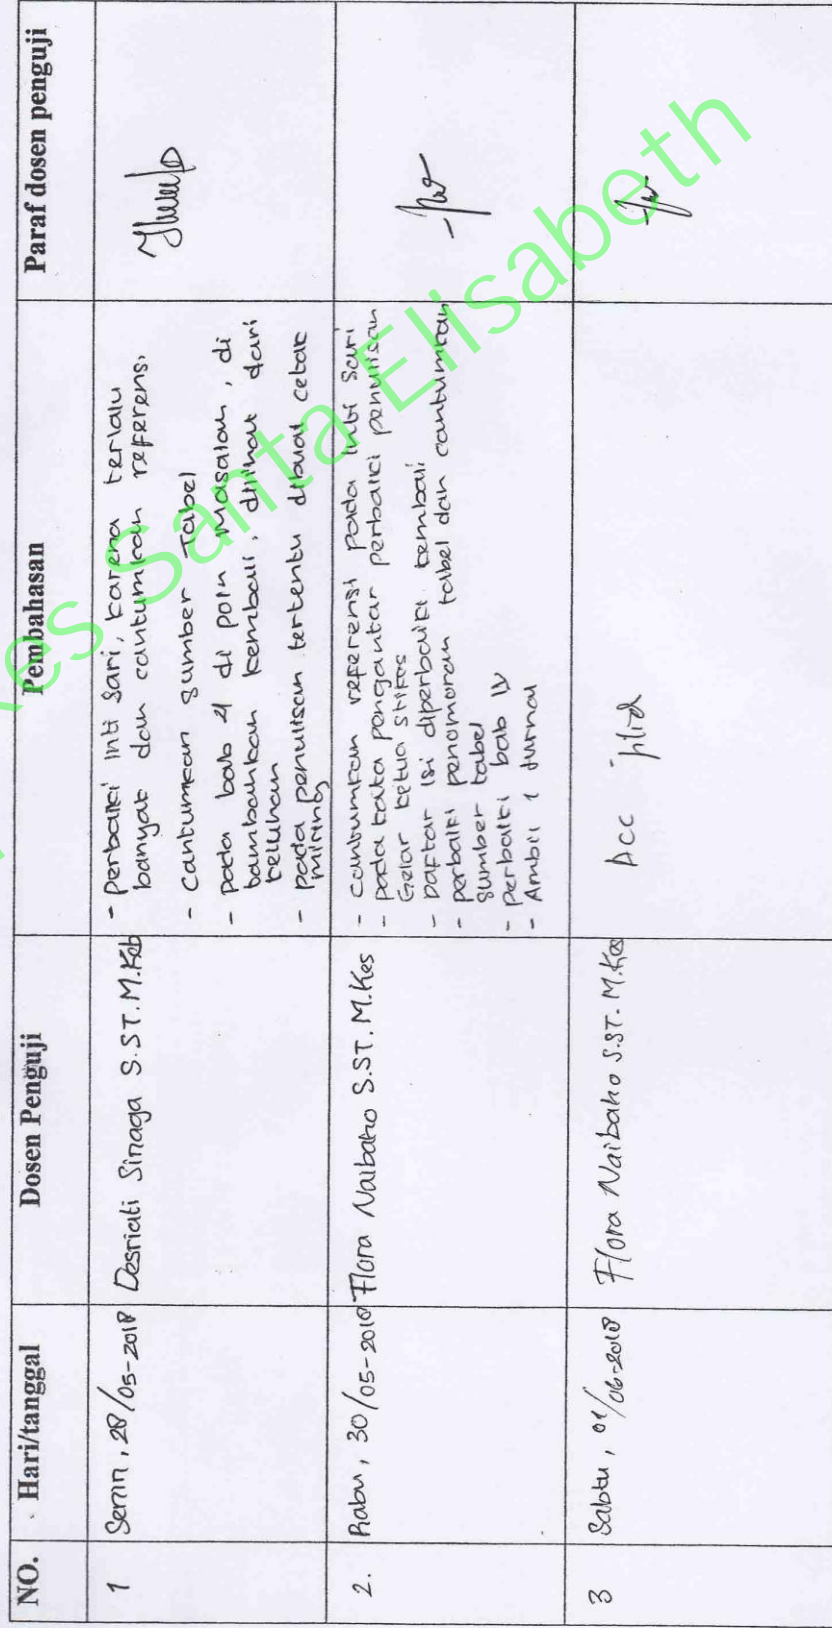 NO.
Hari/tanggal
Dosen Penguji
Pembahasan
Paraf dosen penguji
1
Senin, 28/05-2018
Desriati Sinaga S.ST. M.Keb
- perbaiki inti sari, karena terlalu
banyak dan cantumkan referensi
- cantumkan sumber Tabel
- pada bab 4 di poin Masalah, di
tambahkan kembali, dilihat dari
keluhan
- pada penulisan tertentu dibuat cetak
miring
2.
Rabu, 30/05-2018
Flora Naibaho S.ST. M.Kes
- cantumkan referensi pada inti sari
- pada kata pengantar perbaiki penulisan
Gelar ketua STIKes
- Daftar isi diperbaiki kembali
- perbaiki penomoran tabel dan cantumkan
sumber tabel
- perbaiki bab IV
- Ambil 1 Jurnal
3
Sabtu, 01/06-2018
Flora Naibaho S.ST. M.Kes
Acc jilid
Santa Elisabeth